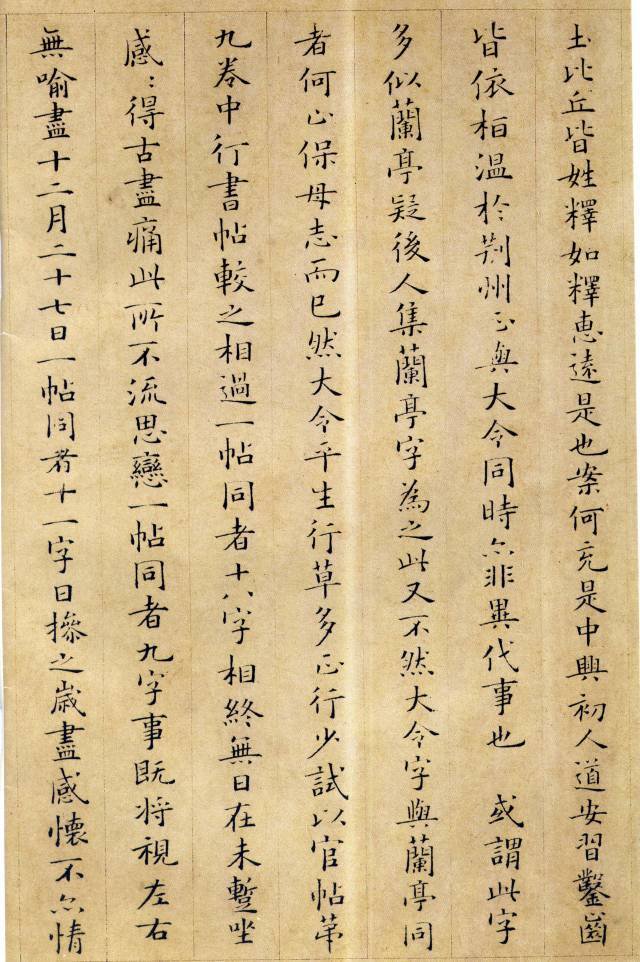 土比丘皆姓釋如釋惠遠是也案何充是中興初人道安習鑿齒
皆依桓溫於荆州正與大令同時亦非異代事也 或謂此字
多似蘭亭疑後人集蘭亭字為之此又不然大令字與蘭亭同
者何止保母志而已然大令平生行草多正行少試以官帖苐
九卷中行書帖較之相過一帖同者十八字相終無日在未蹔坐
感〻得古盡痛此所不流思戀一帖同者九字事既將視左右
無喻盡十二月二十七日一帖同者十一字日操之歲盡感懷不亦情